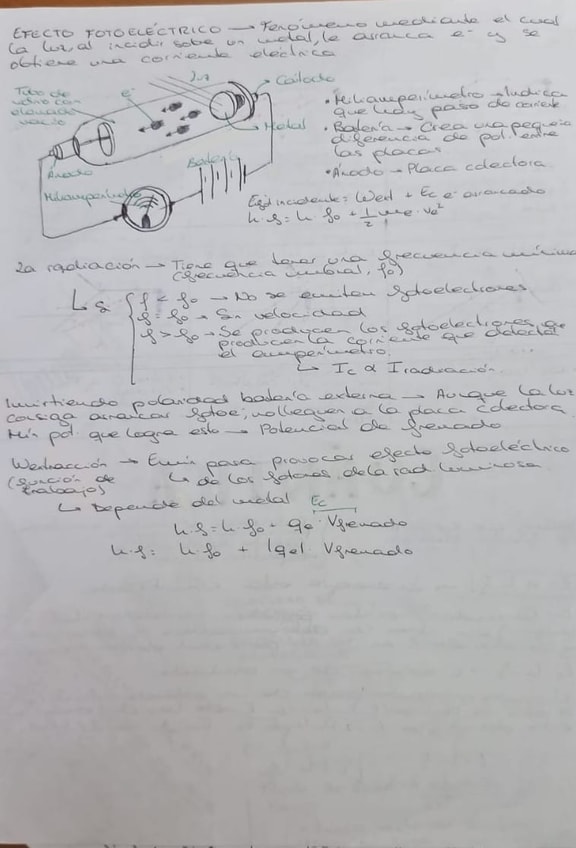 EFECTO FOTOELÉCTRICO → Fenómeno mediante el cual
la luz al incidir sobe un metal, le arranca e- y se
obtiene una corriente eléctrica
Tubo de
vidrio con
elevado
vacío
e-
Luz
Cátodo
Metal
Ánodo
Batería
Miliamperímetro
• Miliamperímetro → Indica
que hay paso de corriente
• Batería → Crea una pequeña
diferencia de pot entre
las placas
• Ánodo → Placa colectora
Eγ incidente = Wext + Ec e- arrancado
h·f = h·f0 + 1/2 me·ve²
La radiación → Tiene que tener una frecuencia mínima
(frecuencia umbral, f0)
↳ Si
f < f0 → No se emiten fotoelectrones
f = f0 → Sin velocidad
f > f0 → Se producen los fotoelectrones que
producen la corriente que detecta
el amperímetro.
↳ Ic α Irradiación
Invirtiendo polaridad batería externa → Aunque la luz
consiga arrancar fotoe- no lleguen a la placa colectora
Mín pot que logra esto → Potencial de frenado
Wextracción → Emín para provocar efecto fotoeléctrico
(función de
trabajo)
↳ de los fotones de la rad luminosa
↳ Depende del metal
Ec
h·f = h·f0 - qe·Vfrenado
h·f = h·f0 + |qe|·Vfrenado